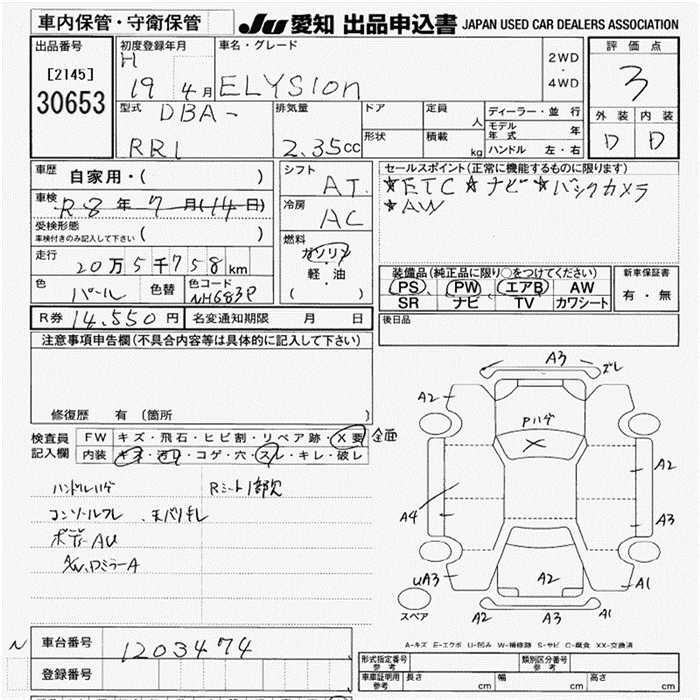 車内保管・守衛保管
JU 愛知 出品申込書 JAPAN USED CAR DEALERS ASSOCIATION
出品番号
[2145]
30653
初度登録年月
H 19 4 月
車名・グレード
ELYSION
2WD
・
4WD
評価点
3
外装 内装
D D
型式 DBA-
RR1
排気量
2.35cc
ドア
形状
定員
人
積載
kg
ディーラー・並 行
モデル年式 年
ハンドル 左・右
車歴 自家用・( )
車検 R 8 年 7 月(14日)
受検形態
車検付きのみ記入して下さい ( )
走行
20万5千758km
色 パール 色替 色コード NH683P
シフト
AT
冷房
AC
燃料
ガソリン
軽 油
( )
セールスポイント(正常に機能するものに限ります)
★ETC★ナビ★バックカメラ
★AW
装備品(純正品に限り○をつけてください)
PS PW エアB AW
SR ナビ TV カワシート
新車保証書
有・無
R券 14,550円 名変通知期限 月 日
後日品
注意事項申告欄(不具合内容等は具体的に記入して下さい)
修復歴 有 (箇所 )
検査員
記入欄
FW キズ・飛石・ヒビ割・リペア跡・X要 全面
内装 キズ・汚レ・コゲ・穴・スレ・キレ・破レ
ハンドルハゲ Rシート1部欠
コンソールフレ
ボデーAU
A/W,DミラーA
A3
ズレ
A2
Pハゲ
X
A2
A4
A3
UA3
A2
A1
スペア
A2
A3
A1
A-キズ E-エクボ U-凹み W-補修跡 S-サビ C-腐食 XX-交換済
N 車台番号 1203474
登録番号
形式指定番号
参考
類別区分番号
参考
車庫証明用
参考
長さ cm 幅 cm 高さ cm